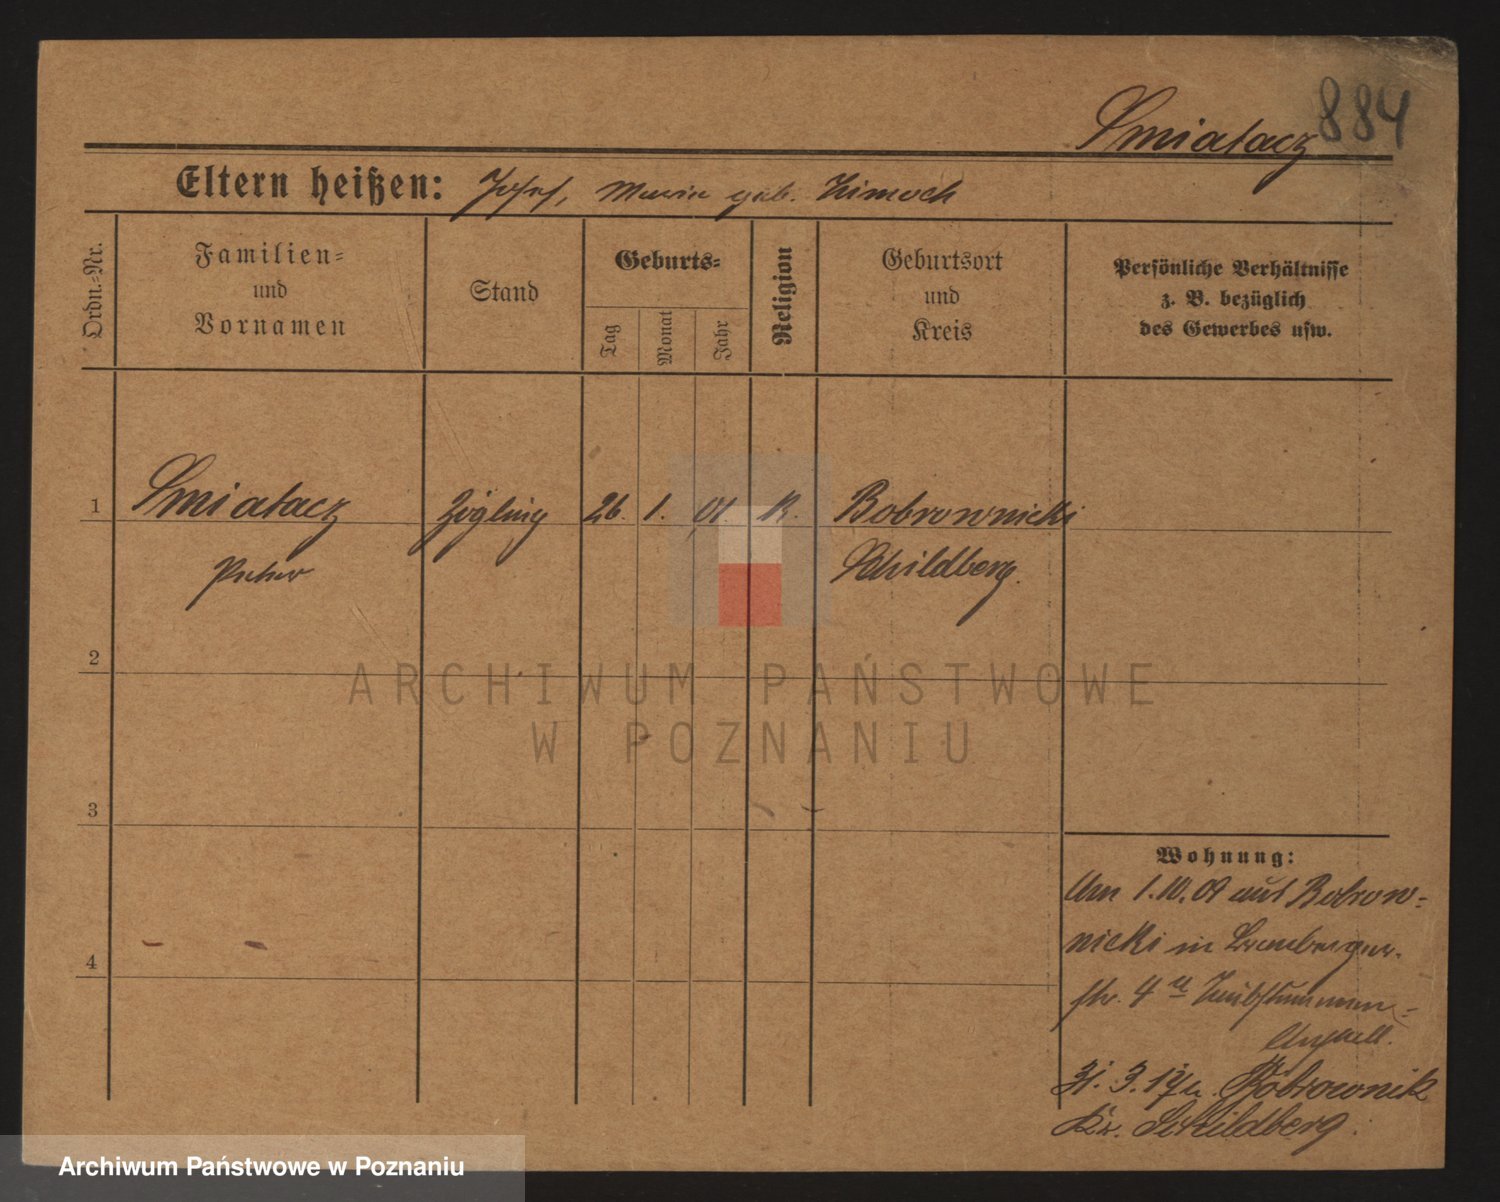 884
Smiatacz
Eltern heißen: Josef, Maria geb. Zimoch
Ordn.=Nr.
Familien=
und
Vornamen
Stand
Geburts=
Tag
Monat
Jahr
Religion
Geburtsort
und
Kreis
Persönliche Verhältnisse
z. B. bezüglich
des Gewerbes usw.
1 Smiatacz Zögling 26. 1. 01. K. Bobrownicki
Schildberg.
2
ARCHIWUM PAŃSTWOWE
W POZNANIU
3
4
Wohnung:
Am 1.10.09 aus Bobrow=
nicki in Bromberger=
str. 4 a Taubstummen=
Anstalt.
31. 3. 17 n. Bobrownik
Kr. Schildberg.
Archiwum Państwowe w Poznaniu